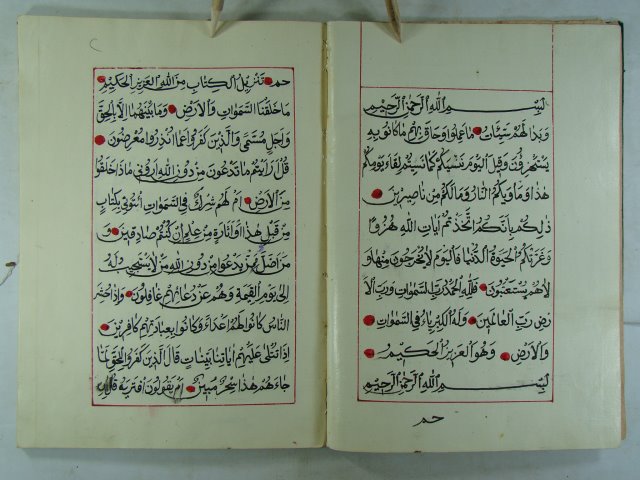 بسم الله الرحمن الرحيم
وبدا لهم سيئات ما عملوا وحاق بهم ما كانوا به
يستهزؤن وقيل اليوم ننسيكم كما نسيتم لقاء يومكم
هذا وماويكم النار وما لكم من ناصرين
ذلكم بأنكم اتخذتم ايات الله هزوا
وغرتكم الحيوة الدنيا فاليوم لا يخرجون منها و
لا هم يستعتبون فلله الحمد رب السموات ورب الا
رض رب العالمين وله الكبرياء في السموات
والارض وهو العزيز الحكيم
بسم الله الرحمن الرحيم
حم
حم تنزيل الكتاب من الله العزيز الحكيم
ما خلقنا السموات والارض وما بينهما الا بالحق
واجل مسمى والذين كفروا عما انذروا معرضون
قل ارايتم ما تدعون من دون الله اروني ماذا خلقوا
من الارض ام لهم شرك في السموات ائتوني بكتاب
من قبل هذا او اثارة من علم ان كنتم صادقين و
من اضل ممن يدعوا من دون الله من لا يستجيب له
الى يوم القيمة وهم عن دعائهم غافلون واذا حشر
الناس كانوا لهم اعداء وكانوا بعبادتهم كافرين
اذا تتلى عليهم اياتنا بينات قال الذين كفروا للحق لما
جاءهم هذا سحر مبين ام يقولون افتريه قل ان